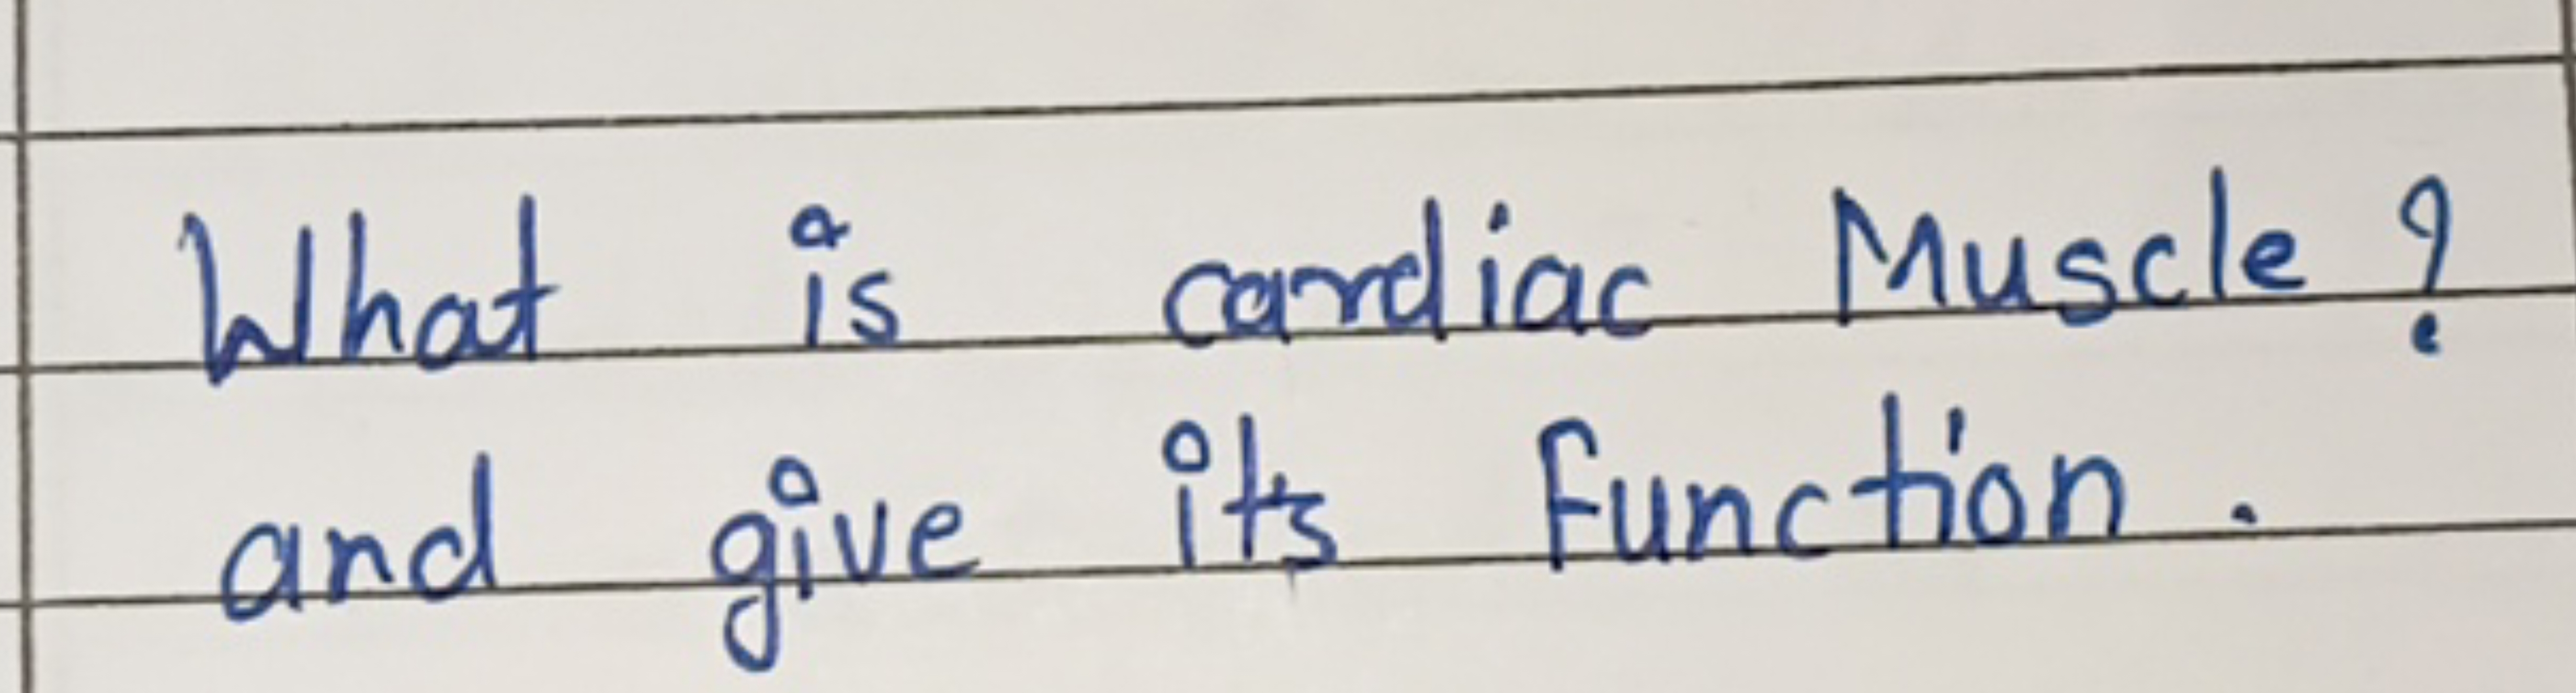 What is cardiac Muscle?
and give its function.